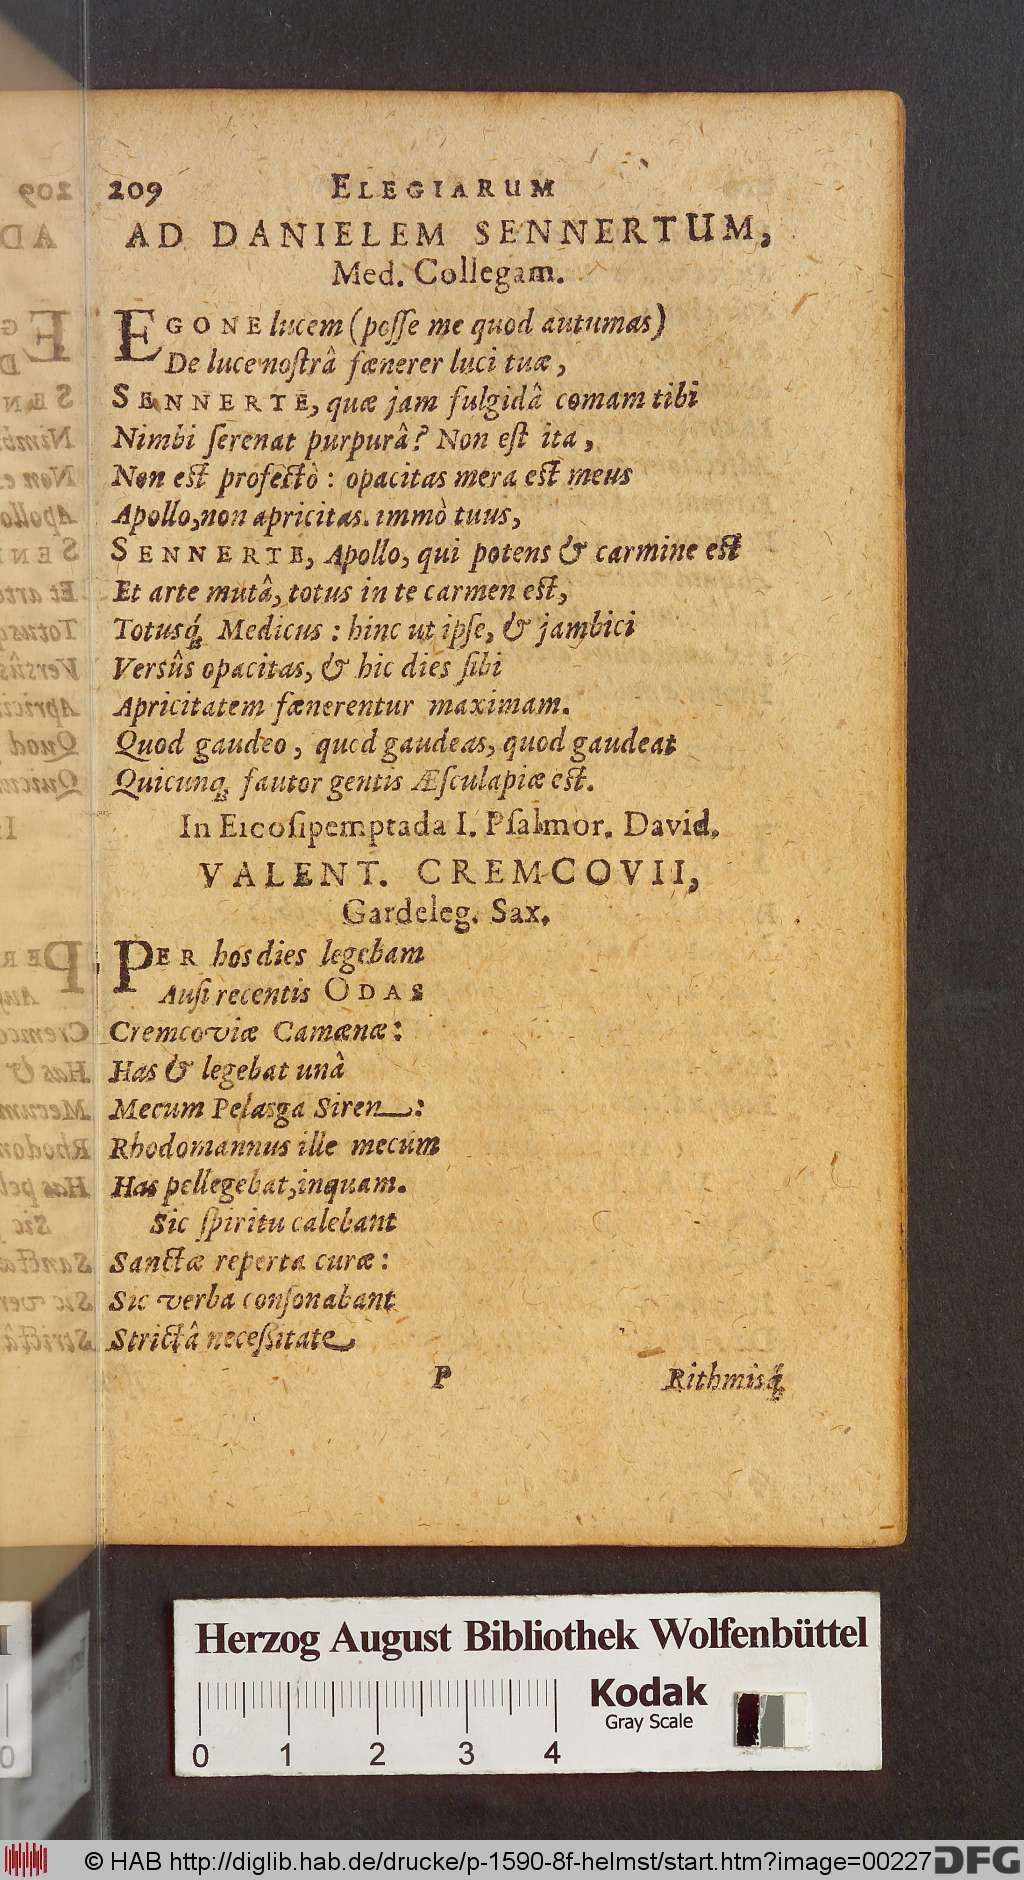 209 ELEGIARUM
AD DANIELEM SENNERTUM,
Med. Collegam.
EGONE lucem (posse me quod autumas)
De luce nostrâ fænerer luci tuæ,
SENNERTE, quæ jam fulgidâ comam tibi
Nimbi serenat purpurâ? Non est ita,
Non est profectò: opacitas mera est meus
Apollo, non apricitas. immò tuus,
SENNERTE, Apollo, qui potens & carmine est
Et arte mutâ, totus in te carmen est,
Totusq́; Medicus: hinc ut ipse, & jambici
Versûs opacitas, & hic dies sibi
Apricitatem fænerentur maximam.
Quod gaudeo, quod gaudeas, quod gaudeat
Quicunq; fautor gentis Æsculapiæ est.
In Eicosipemptada I. Psalmor. David.
VALENT. CREMCOVII,
Gardeleg. Sax.
PER hos dies legebam
Ausi recentis ODAS
Cremcoviæ Camænæ:
Has & legebat unà
Mecum Pelasga Siren:
Rhodomannus ille mecum
Has pellegebat, inquam.
Sic spiritu calebant
Sanctæ reperta curæ:
Sic verba consonabant
Strictâ necessitate
P Rithmisq́;
Herzog August Bibliothek Wolfenbüttel
Kodak
Gray Scale
0 1 2 3 4
© HAB http://diglib.hab.de/drucke/p-1590-8f-helmst/start.htm?image=00227
DFG